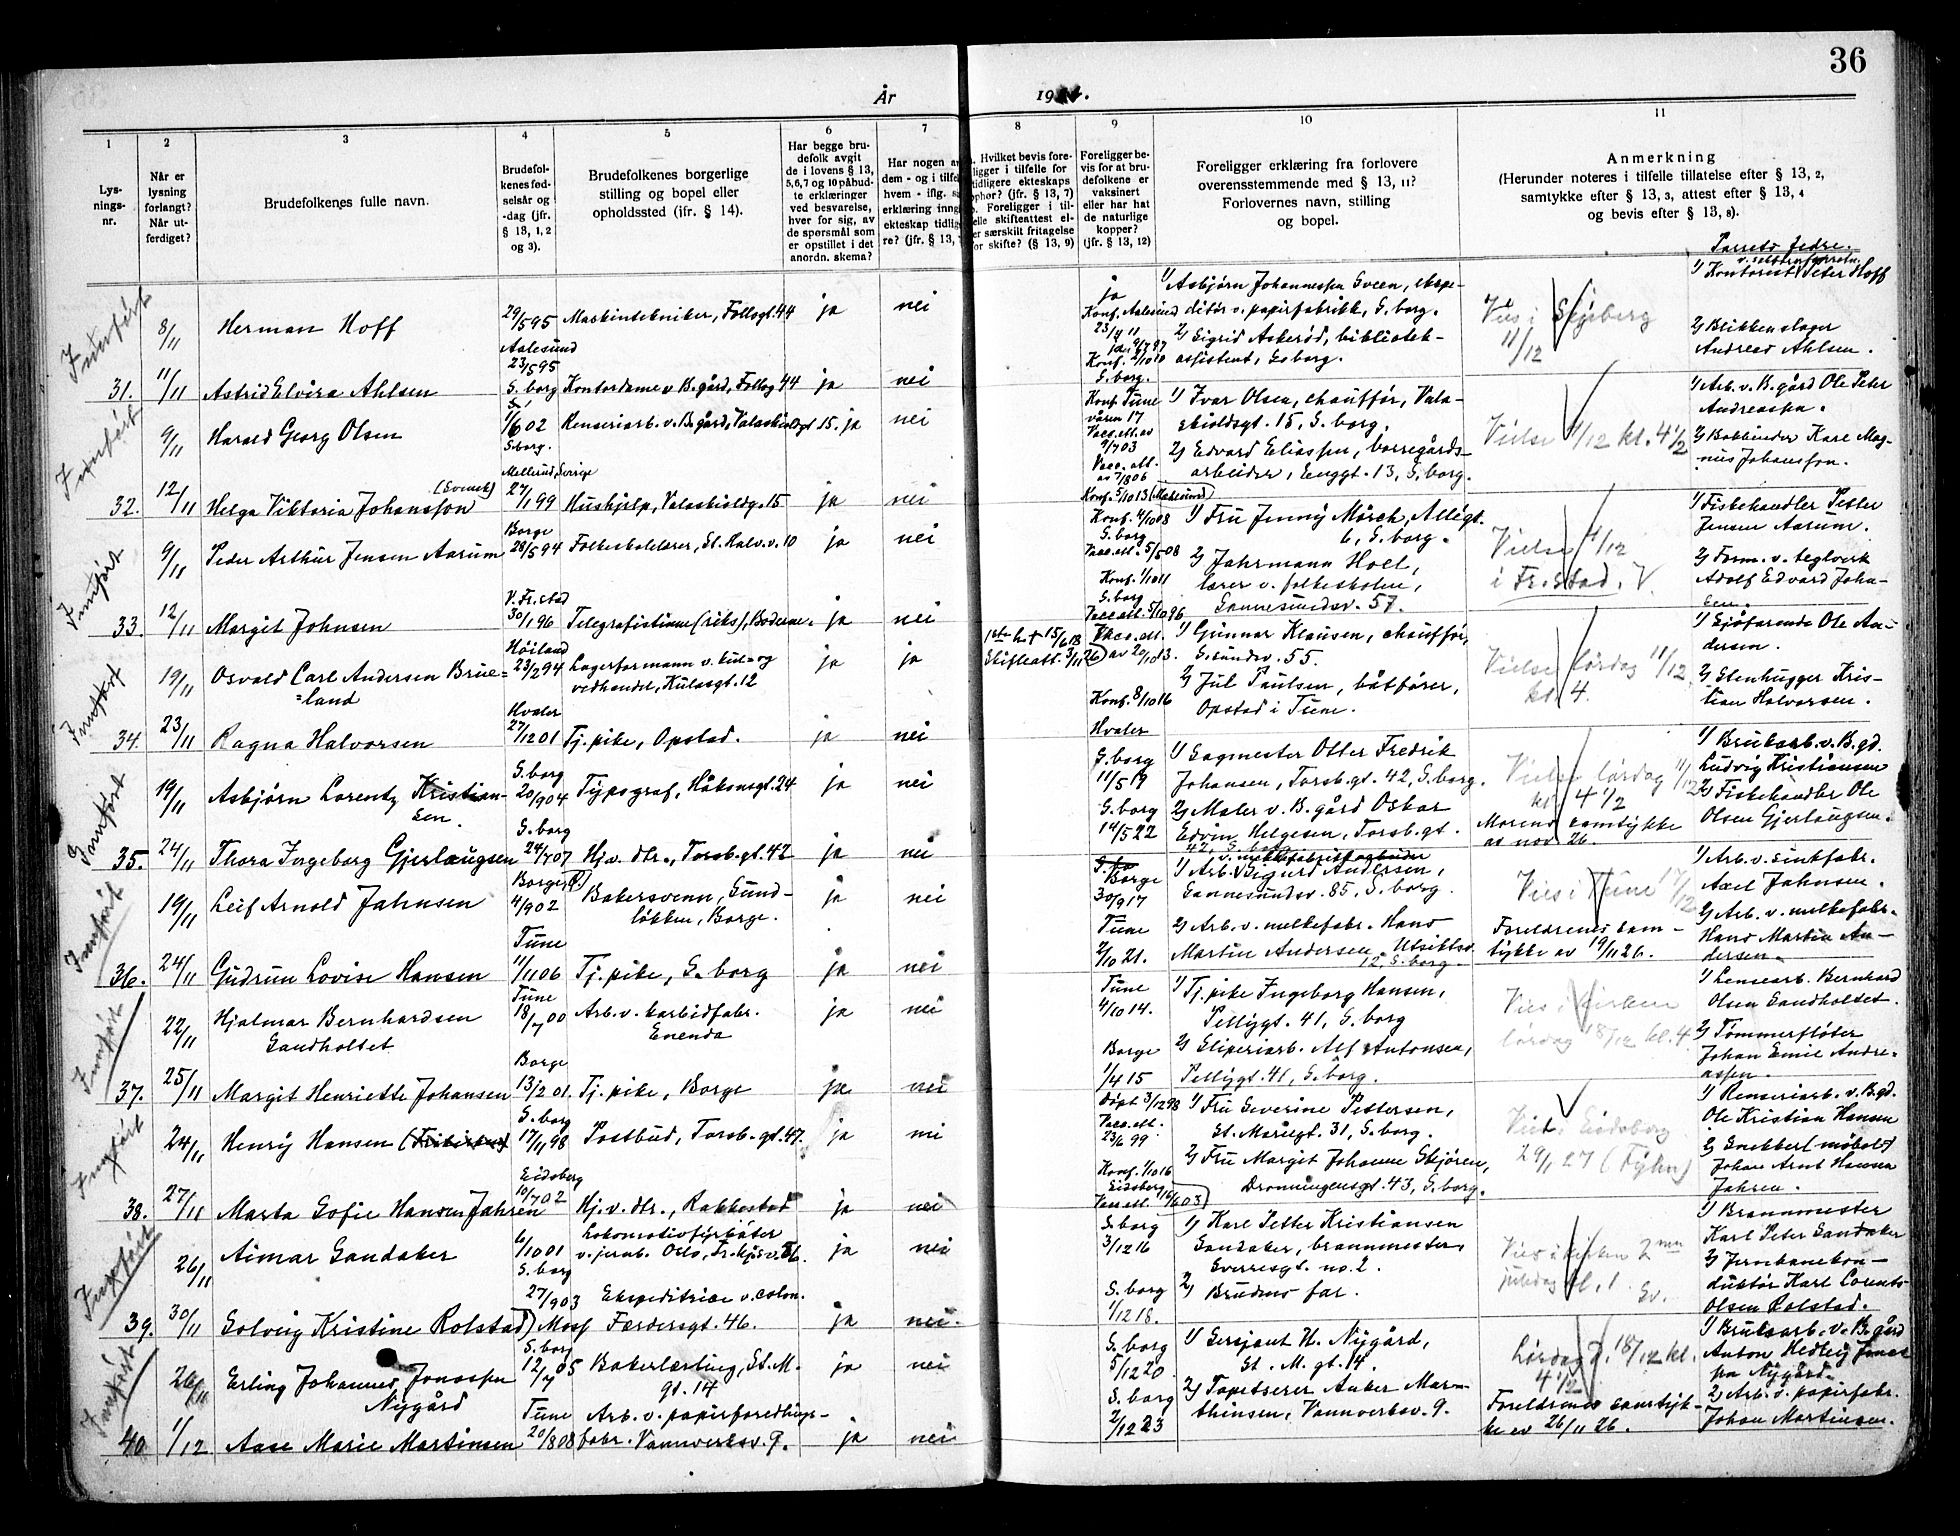 36
År 19
1 2 3 4 5 6 7 8 9 10 11
Lysnings-nr.
Når er lysning forlangt? Når utferdiget?
Brudefolkenes fulle navn.
Brudefolkenes fødselsår og -dag (jfr. § 13, 1, 2 og 3).
Brudefolkenes borgerlige stilling og bopel eller opholdssted (jfr. § 14).
Har begge brudefolk avgit de i lovens § 13, 5, 6, 7 og 10 påbudte erklæringer ved besvarelse, hver for sig, av de spørsmål som er opstillet i det anordn. skema?
Har nogen av dem - og i tilfelle hvem - iflg.
erklæring inng
ekteskap tidlig
re? (jfr. § 13,
Hvilket bevis fore-
ligger i tilfelle for
tidligere ekteskaps
ophør? (jfr. § 13, 7)
Foreligger i til-
felle skifteattest el-
er særskilt fritagelse
for skifte? (§ 13, 9)
Foreligger bevis for at brudefolkene er vaksinert eller har hat de naturlige kopper? (jfr. § 13, 12)
Foreligger erklæring fra forlovere overensstemmende med § 13, 11? Forlovernes navn, stilling og bopel.
Anmerkning
(Herunder noteres i tilfelle tillatelse efter § 13, 2,
samtykke efter § 13, 3, attest efter § 13, 4
og bevis efter § 13, 8).
Parrets fedre.
Innført
8/11 Herman Hoff 29/5 95 Aalesund Maskintekniker, Follogt. 44 ja nei
ja Konf. Aalesund
1/ Asbjørn Johannessen Sveen, ekspeditør v. papirfabrikk, S.borg.
Vies i Skjeberg 11/12
1/ Kontorist Peter Hoff
31. 11/11 Astrid Elvira Ahlsen 23/5 95 S.borg Kontordame v. B.gård, Follog. 44 ja nei
Konf. 2/10 10 S.borg.
2/ Sigrid Askerød, bibliotekassistent, S.borg.
2/ Blikkenslager Andreas Ahlsen.
Innført
9/11 Harald Georg Olsen 1/6 02 S.borg. Renseriarb. v. B.gård, Valaskioldgt 15. ja nei
Konf Tune våren 17 Vacc.att. av
1/ Ivar Olsen, chauffør, Valaskioldsgt. 15, S.borg.
Vielse 4/12 kl. 4 1/2
1/ Arb. v. B.gård Ole Peter Andreassen.
32. 12/11 Helga Viktoria Johansson (Svensk) Mellerud, Sverige 27/1 99 Hushjelp, Valaskioldg. 15 ja nei
Vacc.att. av 7/8 06 Konf. 5/10 13
2/ Edvard Eliassen, borregårdsarbeider, Enggt. 13, S.borg.
2/ Bokbinder Karl Magnus Johansson.
Innført
9/11 Peder Arthur Jensen Aarum Borge 28/5 94 Folkeskolelærer, St. Halv.v. 10 ja nei
Konf. 4/10 08 S.borg Vacc.att. 5/5 08
1/ Fru Jenny Mørch, Allégt. 6, S.borg.
Vielse 4/12 i Fr.stad. V
1/ Fiskehandler Petter Jensen Aarum.
33. 12/11 Margit Johnsen V. Fr.stad 30/1 96 Telegrafistinne (riks), Boderne. ja nei
Konf. 1/10 11 S.borg Vacc.att. 5/10 96
2/ Fahrmann Holt, lærer v. folkeskolen, Sannesundsv. 57.
2/ Form. v. teglverk Adolf Edvard Johnsen.
Innført
19/11 Osvald Carl Andersen Brueland Høiland 23/2 94 Lagerformann v. kul- og vedhandel, Kulasgt. 12 ja ja
1ste h. † 15/6 18 Skifteatt. 3/11 26
Vacc.att. av 20/10 13.
1/ Gunnar Klausen, chauffør, S.sundsv. 55.
Vielse lørdag 11/12 kl 4.
1/ Sjøfarende Ole Andersen.
34. 23/11 Ragna Halvorsen Hvaler 27/12 01 Tj.pike, Opstad. ja nei
Konf. 8/10 16 Hvaler
2/ Jul Paulsen, båtfører, Opstad i Tune.
2/ Stenhugger Kristian Halvorsen.
Innført
19/11 Asbjørn Lorentz Kristiansen. S.borg 20/9 04 Typograf, Håkonsgt. 24 ja nei
S.borg 11/5 19
1/ Sagmester Otter Fredrik Johansen, Torsb.gt. 42, S.borg.
Vielse lørdag 11/12 kl 4 1/2
1/ Bruksarb. v. B.gd. Ludvig Kristiansen
35. 24/11 Thora Ingeborg Gjerlaugsen S.borg 24/7 07 Hjv. dtr., Torsb.gt. 42 ja nei
S.borg 14/5 22
2/ Maler v. B.gård Oskar Edvin Helgesen, Torsb.gt. 42, S.borg
Morens samtykke av nov 26.
2/ Fiskehandler Ole Olsen Gjerlaugsen.
Innført
19/11 Leif Arnold Jahnsen Borge 4/9 02 Bakersvenn, Sundløkken, Borge. ja nei
Borge 30/9 17
1/ Arb. v. melkefabrikkarbeider Sigurd Andersen, Sannesundsv. 85, S.borg.
Vies i Tune 17/12
1/ Arb. v. sinkfabr. Axel Jahnsen.
36. 24/11 Gudrun Lovise Hansen Tune 11/11 06 Tj.pike, S.borg ja nei
Tune 2/10 21.
2/ Arb. v. melkefabr. Hans Martin Andersen, Utsiktsv. 12, S.borg.
Foreldrenes samtykke av 19/11 26.
2/ Arb. v. melkefabr. Hans Martin Andersen.
Innført
22/11 Hjalmar Bernhardsen Sandholtet Tune 18/7 00 Arb. v. karbidfabr. Enenda ja nei
Tune 4/10 14.
1/ Tj.pike Ingeborg Hansen, Pellygt. 41, S.borg
Vies i kirken lørdag 18/12 kl. 4
1/ Lensearb. Bernhard Olsen Sandholtet.
37. 25/11 Margit Henriette Johansen Borge 13/2 01. Tj.pike, Borge ja nei
Borge 1/4 15
2/ Sliperiarb. Alf Antonsen, Pellygt. 41, S.borg.
2/ Tømmerfløter Johan Emil Andreassen.
Innført
24/11 Henry Hansen S.borg 17/11 98 Postbud, Torsb.gt. 47. ja nei
Døpt 3/12 98 Vacc.att. 23/6 99.
1/ Fru Severine Pettersen, St. Mariegt. 31, S.borg.
Viet i Eidsberg 29/1 27 (Fyhn)
1/ Renseriarb. v. B.gd. Ole Kristian Hansen
38. 27/11 Marta Sofie Hansen Jahren Eidsberg 10/7 02 Hj.v. dtr., Rakkestad ja nei
Konf. 1/10 16 Eidsberg Vacc.att. 16/6 03
2/ Fru Margit Johanne Skjøren, Dronningensgt. 43, S.borg.
2/ Snekker (møbel) Johan Arnt Hansen Jahren.
Innført
26/11 Aimar Sandaker 6/10 01 S.borg Lokomotivfyrbøter v. jernb. Oslo, Fr.kjs v. 56. ja nei
S.borg 3/12 16
1/ Karl Petter Kristiansen Sandaker, brannmester, Sverresgt. no. 2.
Vies i kirken 2nn juledag kl. 1. Sv.
1/ Brannmester Karl Peter Sandaker
39. 30/11 Solveig Kristine Rolstad 27/9 03 Moss Ekspeditrice v. colon. Færdersgt. 46. ja nei.
S.borg 1/12 18.
2/ Brudens far.
2/ Jernbanekonduktør Karl Lorents Olsen Rolstad.
Innført
26/11 Erling Johannes Jonassen Nygård S.borg 12/7 05 Bakerlærling, St. M. gt. 14 ja nei
S.borg 5/12 20
1/ Sersjant H. Nygård, St. M. gt. 14.
Lørdag d. 18/12 kl. 4 1/2
1/ Bruksarb. v. B.gård Anton Hedley Jonassen Nygård.
40. 1/12 Aase Marie Martinsen Tune 20/8 08 Arb. v. papirforedlingsfabr. Vannverksv. 9. ja nei
S.borg 2/12 23
2/ Tapetserer Anker Marthinsen, Vannverksv. 9.
Foreldrenes samtykke av 26/11 26.
2/ Arb. v. papirfabr. Johan Martinsen.